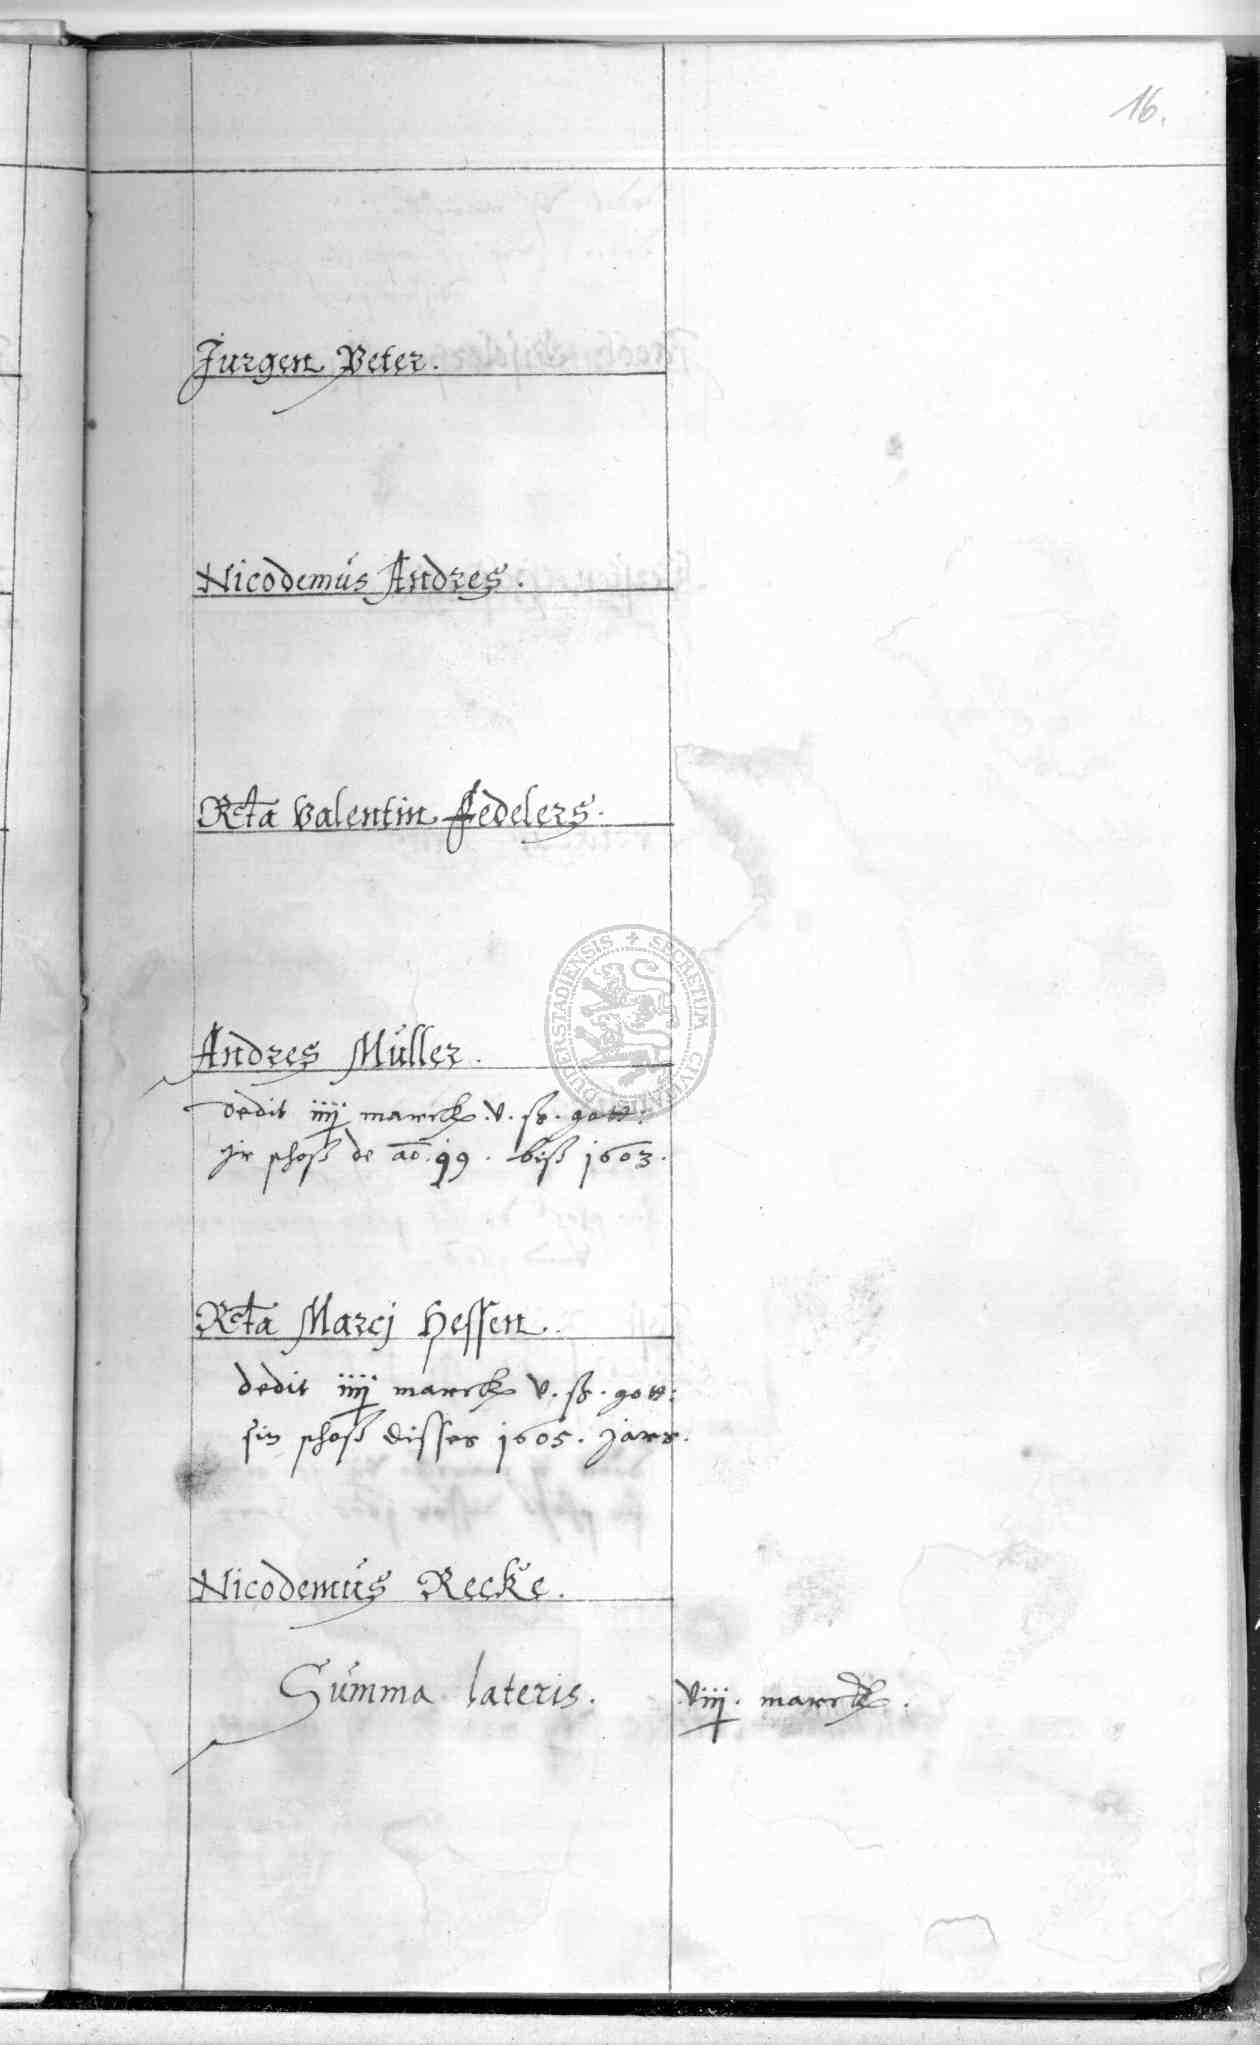 16.
Jurgen Peter.
Nicodemus Andres.
Rcta Valentin Fedelers.
Andres Müller.
dedit iiij marck. v. ß. gott:
jr schoß de ao. 99. biß 1603.
Rcta Marcj Hessen.
dedit iiij marck v. ß. gott:
sin schoß disses 1605. jars.
Nicodemus Recke.
Summa lateris. viiij. marck.
SECRETUM CIVITATIS DUDERSTADIENSIS